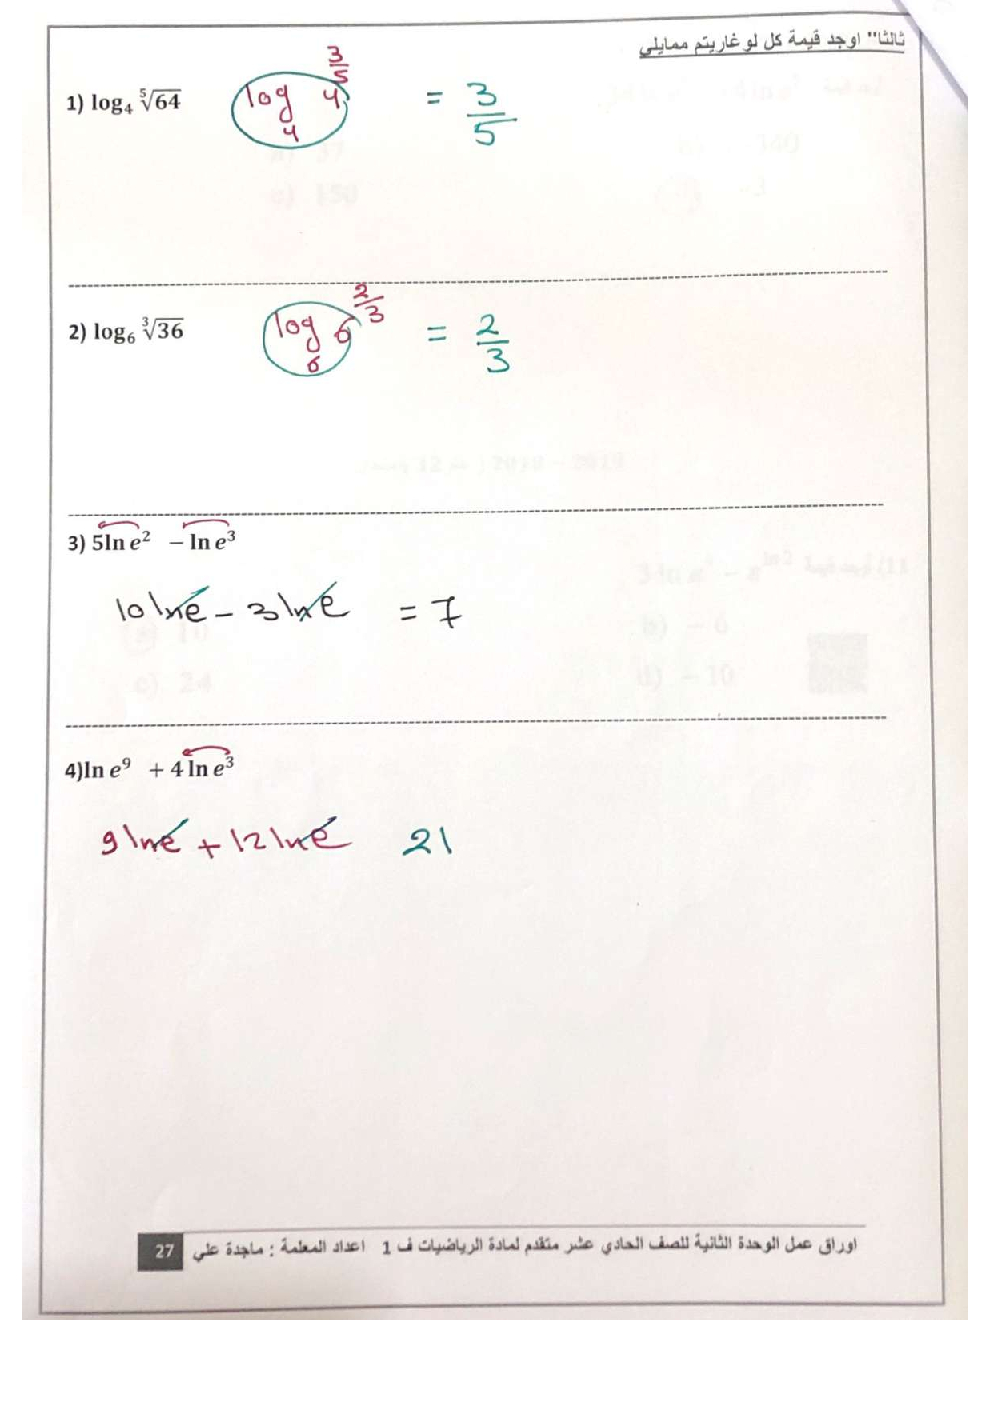 ثالثا" اوجد قيمة كل لوغاريتم ممايلي
1) log₄ ⁵√64 log₄ 4^(3/5) = 3/5
2) log₆ ³√36 log₆ 6^(2/3) = 2/3
3) 5ln e² − ln e³
10 lne − 3 lne = 7
4)ln e⁹ + 4 ln e³
9 lne + 12 lne 21
اوراق عمل الوحدة الثانية للصف الحادي عشر متقدم لمادة الرياضيات ف 1 اعداد المعلمة : ماجدة علي 27